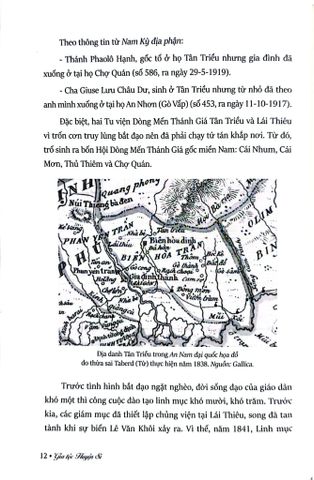 Theo thông tin từ Nam Kỳ địa phận:
- Thánh Phaolô Hạnh, gốc tổ ở họ Tân Triều nhưng gia đình đã
xuống ở tại họ Chợ Quán (số 586, ra ngày 29-5-1919).
- Cha Giuse Lưu Châu Dư, sinh ở Tân Triều nhưng từ nhỏ đã theo
anh mình xuống ở tại họ An Nhơn (Gò Vấp) (số 453, ra ngày 11-10-1917).
Đặc biệt, hai Tu viện Dòng Mến Thánh Giá Tân Triều và Lái Thiêu
vì trốn cơn truy lùng bắt đạo nên đã phải chạy tứ tán khắp nơi. Từ đó,
trổ sinh ra bốn Hội Dòng Mến Thánh Giá gốc miền Nam: Cái Nhum, Cái
Mơn, Thủ Thiêm và Chợ Quán.
quang phong
Núi Thiêng bà đen
Tân triều
Biên hòa dinh
BIEN HOA TRAN
Gia dinh thành
Đồng môn
Địa danh Tân Triều trong An Nam đại quốc họa đồ
do thừa sai Taberd (Từ) thực hiện năm 1838. Nguồn: Gallica.
Trước tình hình bắt đạo ngặt nghèo, đời sống đạo của giáo dân
khó một thì công cuộc đào tạo linh mục khó mười, khó trăm. Trước
kia, các giám mục đã thiết lập chủng viện tại Lái Thiêu, song đã tan
tành khi sự biến Lê Văn Khôi xảy ra. Vì thế, năm 1841, Linh mục
12 • Gia tộc Huyện Sĩ